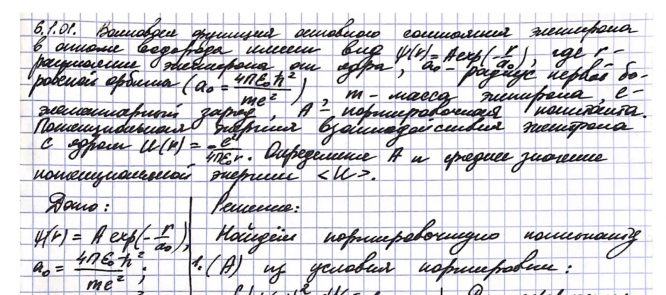 6.1.01. Волновая функция основного состояния электрона
в атоме водорода имеет вид ψ(r)=A exp(-r/a₀), где r-
расстояние электрона от ядра, a₀ - радиус первой бо-
ровской орбиты (a₀ = 4πε₀ħ²/me²), m - масса электрона, e-
элементарный заряд, A - нормировочная константа.
Потенциальная энергия взаимодействия электрона
с ядром U(r) = -e²/4πε₀r. Определите A и среднее значение
потенциальной энергии <U>.
Дано:
ψ(r) = A exp(-r/a₀),
a₀ = 4πε₀ħ²/me²;
Решение:
Найдём нормировочную константу
1. (A) из условия нормировки: